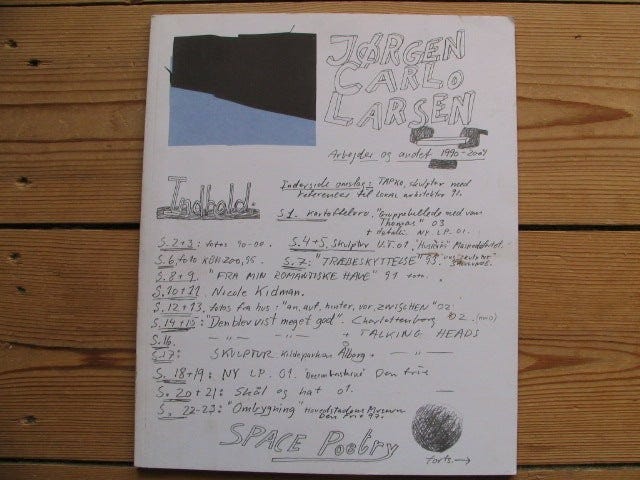 JØRGEN
CARLO
LARSEN
Arbejder og andet 1990-2004
Indhold.
Inderside omslag: TAPKO, skulptur med
references til LOKAL arkitektur 91.
S. 1. Kartoffelord. "Gruppebillede med van
Thomas" 03
+ detalje NY LP. 01.
S. 2+3: fotos 90-00. S. 4+5. Skulptur U.T. 01.
S. 6, foto KBH ZOO, 95. S. 7: "TRÆBESKYTTELSE" 93.
S. 8+9. "FRA MIN ROMANTISKE HAVE" 91
S. 10+11. Nicole Kidman.
S. 12+13. fotos fra hus: "an, auf, hinter, vor, ZWISCHEN" 02.
S. 14+15: "Den blev vist meget god". Charlottenborg 02.
S. 16. — " — " — + TALKING HEADS
S. 17: SKULPTUR. Kildeparken Ålborg + — " —
S. 18+19: NY LP. 01. Den frie
S. 20+21: Skål og hat 01.
S. 22-23: "Ombygning" Hovedstadens Museum
Den Frie 97.
SPACE Poetry
forts. →